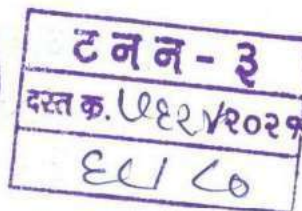 ट न न - ३
दस्त क. ५६२४/२०२१
६५/८०